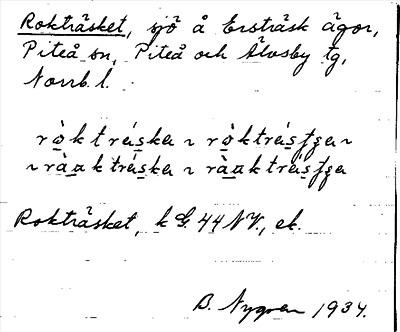 Rokträsket, sjö å Ersträsk ägor,
Piteå sn, Piteå och Älvsby tg,
Norrb. l.
ròktráska ~ ròktrásʃʒa ~
~ ràaktráska ~ ràaktrásʃʒa
Rokträsket, k G. 44 NV., ek.
B. Nygren 1934.